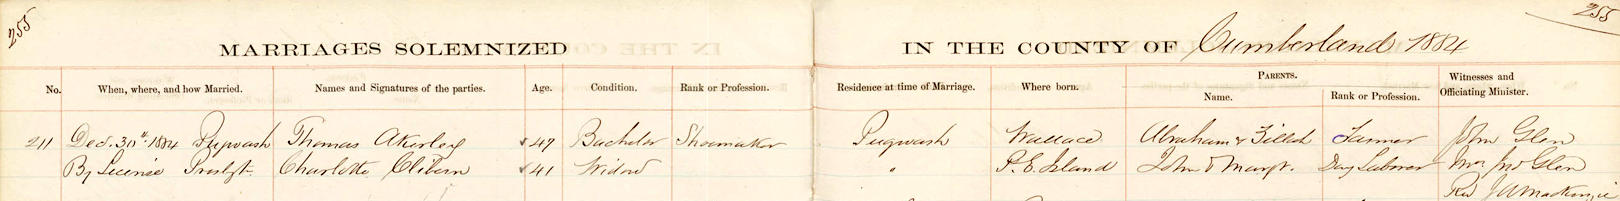 255
255
MARRIAGES SOLEMNIZED IN THE COUNTY OF Cumberland 1884
No. When, where, and how Married. Names and Signatures of the parties. Age. Condition. Rank or Profession. Residence at time of Marriage. Where born. PARENTS. Name. Rank or Profession. Witnesses and Officiating Minister.
211 Dec. 30th 1884 Pugwash Thomas Akerley 47 Bachelor Shoemaker Pugwash Wallace Abraham & Zilled Farmer John Glen
By License Presbyt. Charlotte Cliburn 41 Widow " P. E. Island John & Margt. Day Laborer Mrs Jno Glen
Rev J A Mackenzie